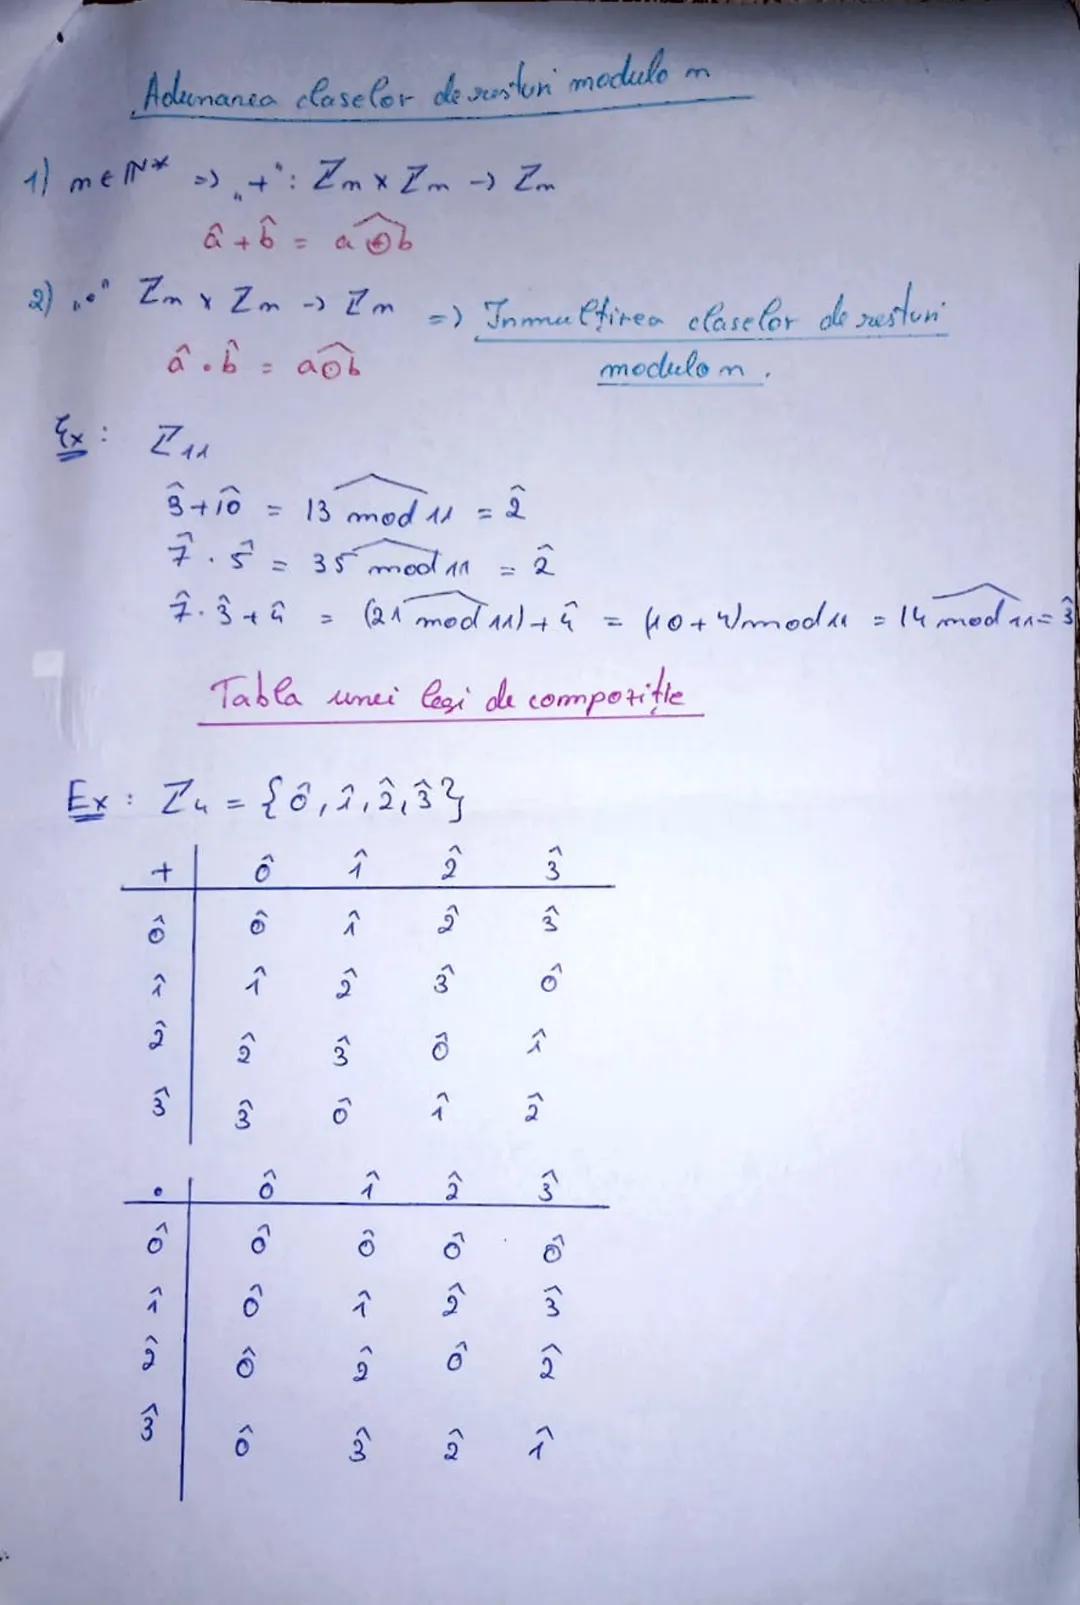 Adunarea claselor de resturi modulo n
1) n ∈ N* => „+": Zn x Zn -> Zn
â + b̂ = a⊕b
2) „•" Zn x Zn -> Zn => Inmulțirea claselor de resturi
modulo n.
â • b̂ = a⊙b
Ex: Z11
3̂ + 10̂ = 13 mod 11 = 2̂
7̂ . 5̂ = 35 mod 11 = 2̂
7̂ . 3̂ + 4̂ = (21 mod 11) + 4̂ = (10+4) mod 11 = 14 mod 11 = 3̂
Tabla unei legi de compoziție
Ex: Z4 = {0̂, 1̂, 2̂, 3̂}
+ 0̂ 1̂ 2̂ 3̂
0̂ 0̂ 1̂ 2̂ 3̂
1̂ 1̂ 2̂ 3̂ 0̂
2̂ 2̂ 3̂ 0̂ 1̂
3̂ 3̂ 0̂ 1̂ 2̂
• 0̂ 1̂ 2̂ 3̂
0̂ 0̂ 0̂ 0̂ 0̂
1̂ 0̂ 1̂ 2̂ 3̂
2̂ 0̂ 2̂ 0̂ 2̂
3̂ 0̂ 3̂ 2̂ 1̂